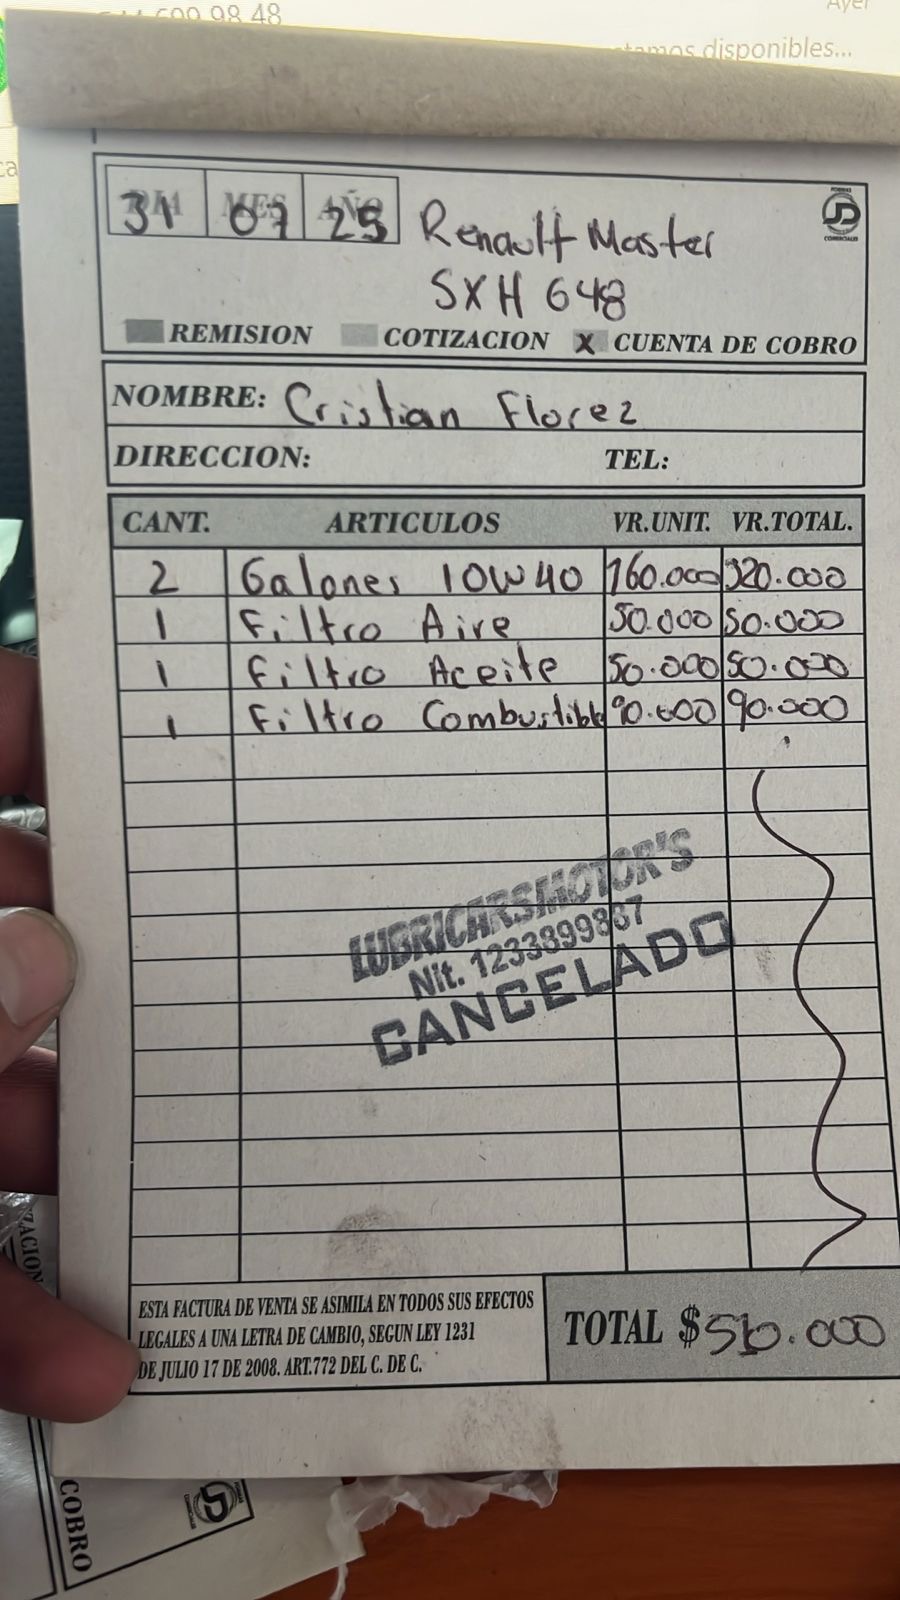 699 98 48
Ayer
disponibles...
DIA MES AÑO
31 07 25
Renault Master
SXH 648
JD
COMERCIALES
REMISION COTIZACION X CUENTA DE COBRO
NOMBRE: Cristian Florez
DIRECCION: TEL:
CANT. ARTICULOS VR.UNIT. VR.TOTAL.
2 Galones 10W40 160.000 320.000
1 Filtro Aire 50.000 50.000
1 Filtro Aceite 50.000 50.000
1 Filtro Combustible 90.000 90.000
LUBRICARSMOTOR'S
Nit. 1233899887
CANCELADO
ESTA FACTURA DE VENTA SE ASIMILA EN TODOS SUS EFECTOS
LEGALES A UNA LETRA DE CAMBIO, SEGUN LEY 1231
DE JULIO 17 DE 2008. ART.772 DEL C. DE C.
TOTAL $ 510.000
COBRO